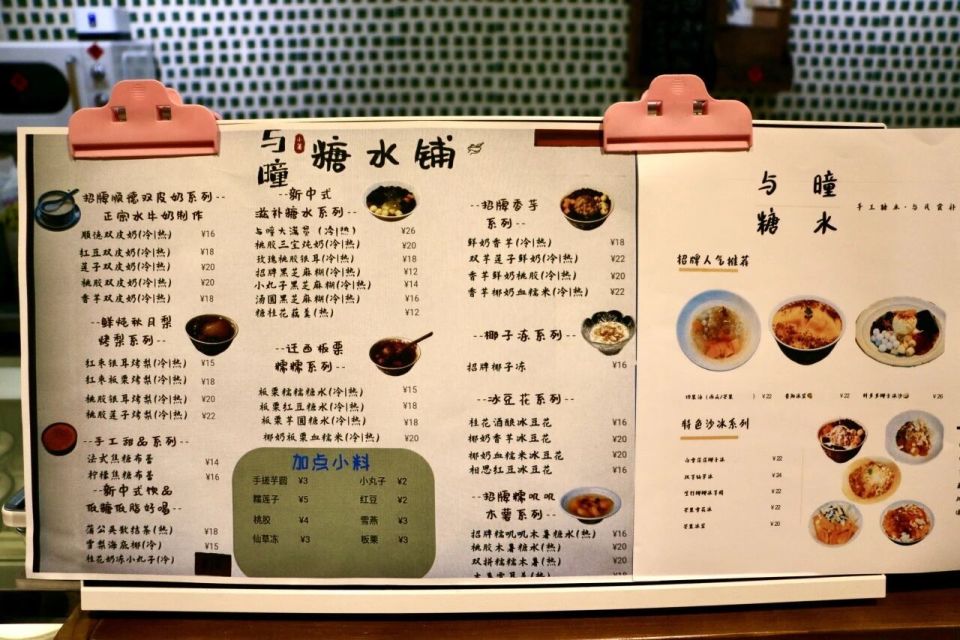 与瞳 糖水铺
招牌顺德双皮奶系列--
正宗水牛奶制作
顺德双皮奶(冷|热) ¥16
红豆双皮奶(冷|热) ¥18
莲子双皮奶(冷|热) ¥20
桃胶双皮奶(冷|热) ¥20
香芋双皮奶(冷|热) ¥18
--鲜炖秋月梨
烤梨系列--
红枣银耳烤梨(冷|热) ¥15
红枣板栗烤梨(冷|热) ¥18
桃胶银耳烤梨(冷|热) ¥20
桃胶莲子烤梨(冷|热) ¥22
--手工甜品系列--
法式焦糖布蕾 ¥14
柠檬焦糖布蕾 ¥16
--新中式饮品
低糖低脂好喝--
蒲公英散结茶(热) ¥18
雪梨海底椰(冷) ¥15
桂花奶冻小丸子(冷)
--新中式
滋补糖水系列--
与瞳大满贯(冷|热) ¥26
桃胶三宝炖奶(冷|热) ¥20
玫瑰桃胶银耳(冷|热) ¥18
招牌黑芝麻糊(冷|热) ¥12
小丸子黑芝麻糊(冷|热) ¥14
汤圆黑芝麻糊(冷|热) ¥16
糖桂花藕羹(热) ¥12
--迁西板栗
糯糯系列--
板栗糯糯糖水(冷|热) ¥15
板栗红豆糖水(冷|热) ¥18
板栗芋圆糖水(冷|热) ¥18
椰奶板栗血糯米(冷|热) ¥20
加点小料
手搓芋圆 ¥3 小丸子 ¥2
糯莲子 ¥5 红豆 ¥2
桃胶 ¥4 雪燕 ¥3
仙草冻 ¥3 板栗 ¥3
--招牌香芋
系列--
鲜奶香芋(冷|热) ¥18
双芋莲子鲜奶(冷|热) ¥22
香芋鲜奶桃胶(冷|热) ¥20
香芋椰奶血糯米(冷|热) ¥22
--椰子冻系列--
招牌椰子冻 ¥16
--冰豆花系列--
桂花酒酿冰豆花 ¥16
椰奶香芋冰豆花 ¥20
椰奶血糯米冰豆花 ¥20
相思红豆冰豆花 ¥16
--招牌糯叽叽
木薯系列--
招牌糯叽叽木薯糖水(热) ¥16
桃胶木薯糖水(热) ¥20
双拼糯糯木薯(热) ¥20
¥18
与瞳
糖水
招牌人气推荐
¥22 ¥22 ¥26
特色沙冰系列
¥22
¥24
¥22
芒果雪花冰 ¥22
芒果冰豆 ¥20